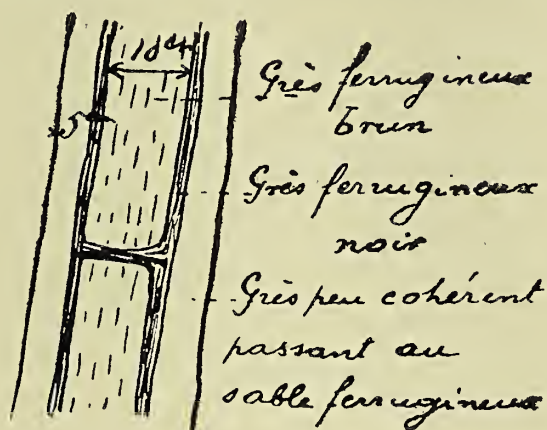 Grès ferrugineux
brun
Grès ferrugineux
noir
Grès peu cohérent
passant au
sable ferrugineux